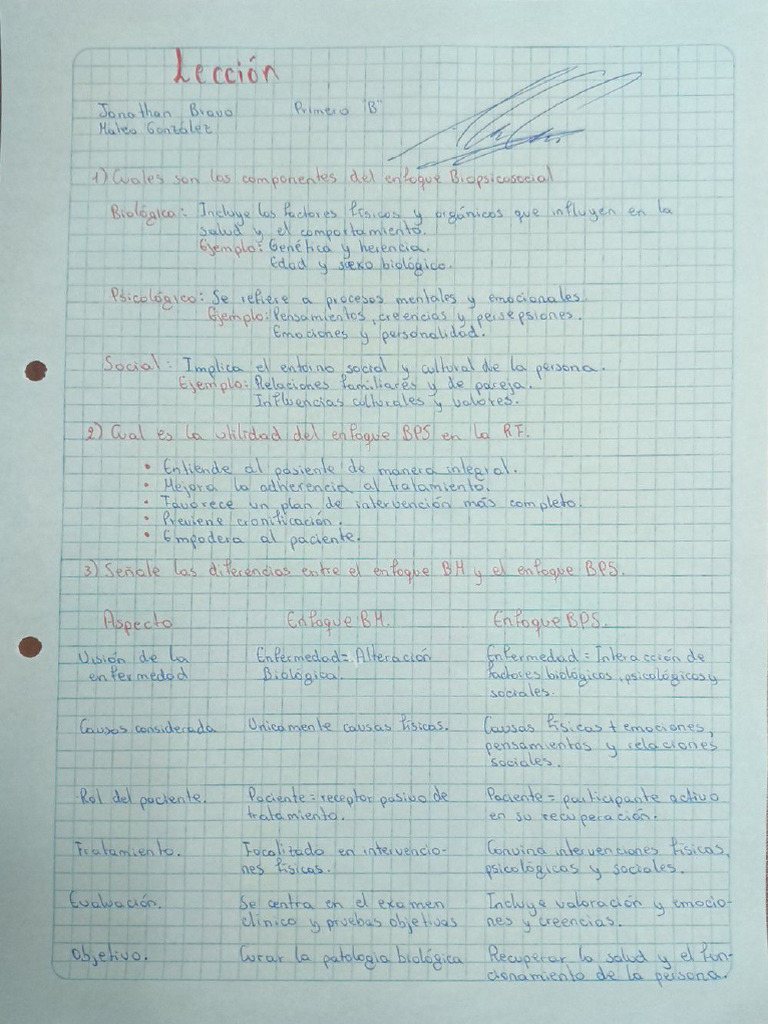 Lección
Jonathan Bravo Primero "B"
Mateo González
1) Cuales son los componentes del enfoque Biopsicosocial
Biológica: Incluye los factores físicos y orgánicos que influyen en la
salud y el comportamiento.
Ejemplo: Genética y herencia.
Edad y sexo biológico.
Psicológico: Se refiere a procesos mentales y emocionales.
Ejemplo: Pensamientos, creencias y persepsiones.
Emociones y personalidad.
Social: Implica el entorno social y cultural de la persona.
Ejemplo: Relaciones familiares y de pareja.
Influencias culturales y valores.
2) Cual es la utilidad del enfoque BPS en la RF.
• Entiende al pasiente de manera integral.
• Mejora la adherencia al tratamiento.
• Favorece un plan de intervención más completo.
• Previene cronificación.
• Empodera al paciente.
3) Señale las diferencias entre el enfoque BM y el enfoque BPS.
Aspecto Enfoque BM. Enfoque BPS.
Visión de la Enfermedad = Alteración Enfermedad = Interacción de
enfermedad Biológica. factores biológicos, psicológicos y
sociales.
Causas considerada Unicamente causas físicas. Causas físicas + emociones,
pensamientos y relaciones
sociales.
Rol del paciente. Paciente = receptor pasivo de Paciente = participante activo
tratamiento. en su recuperación.
Tratamiento. Focalizado en intervencio- Convina intervenciones físicas,
nes físicas. psicológicos y sociales.
Evaluación. Se centra en el examen Incluye valoración y emocio-
clínico y pruebas objetivas nes y creencias.
Objetivo. Curar la patologia biológica Recuperar la salud y el fun-
cionamiento de la persona.